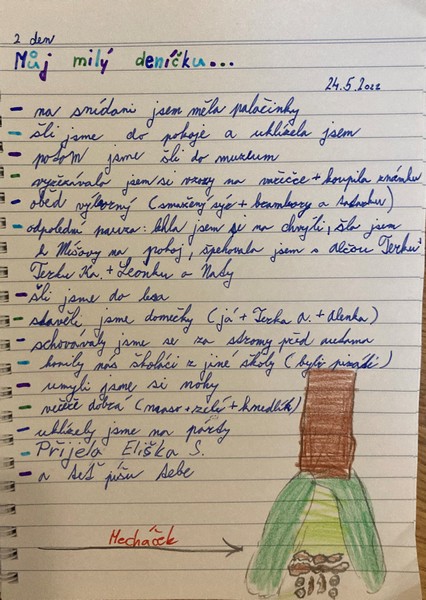 2 den
Můj milý deníčku...
24.5.2022
- na snídani jsem měla palačinky
- šli jsme do pokoje a uklízela jsem
- potom jsme šli do muzeum
- vyzkávala jsem si vzory na + koupila známku
- oběd výborný (smažený sýr + brambory a)
- odpolední pauza: lehla jsem si na chvíli, šla jsem
k Míšovy na pokoj, špehovala jsem s Terku+
Terku Ka. + Leonku a Naty
- šli jsme do lesa
- stavěli jsme domečky (já + Terka a. + Alenka)
- schovávaly jsme se za stromy před vedama
- honily nás školáci z jiné školy (byli)
- umyli jsme si nohy
- večeře dobrá (maso + zelí + knedlík)
- uklízely jsme na párty
- Přijela Eliška S.
- a teť píšu sebe
Mecháček